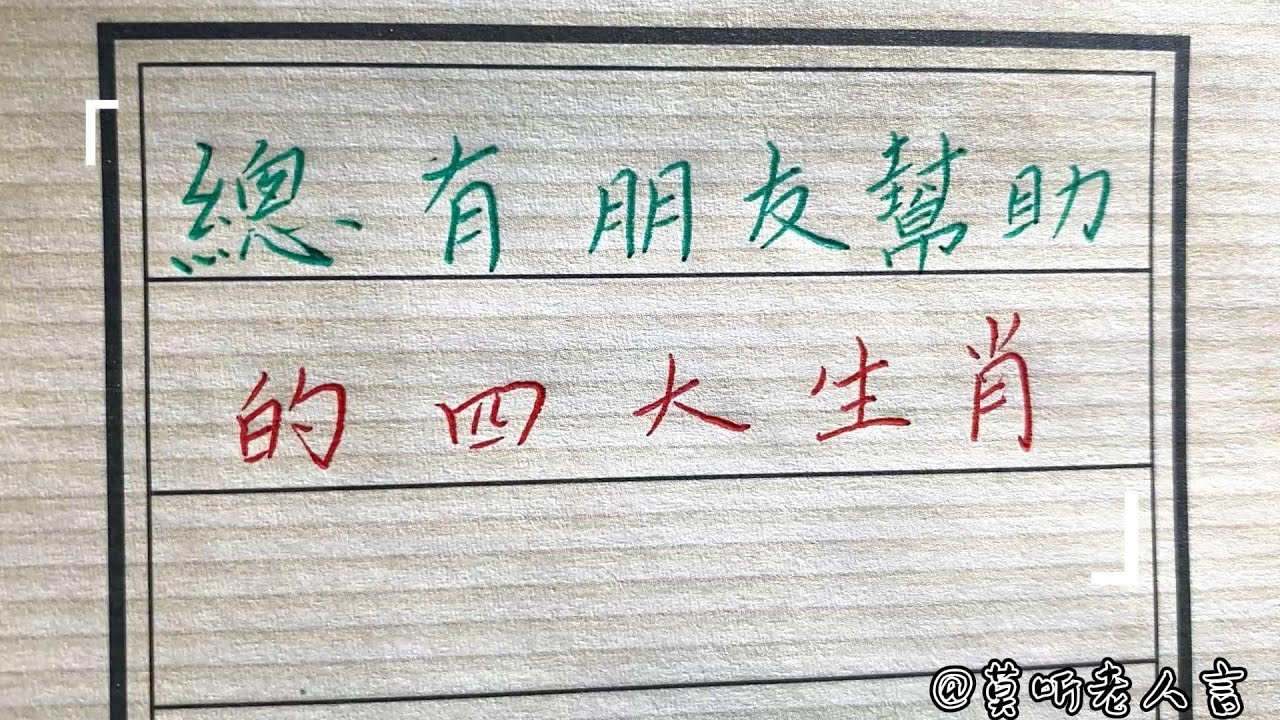 總有朋友幫助
的四大生肖
@莫听老人言